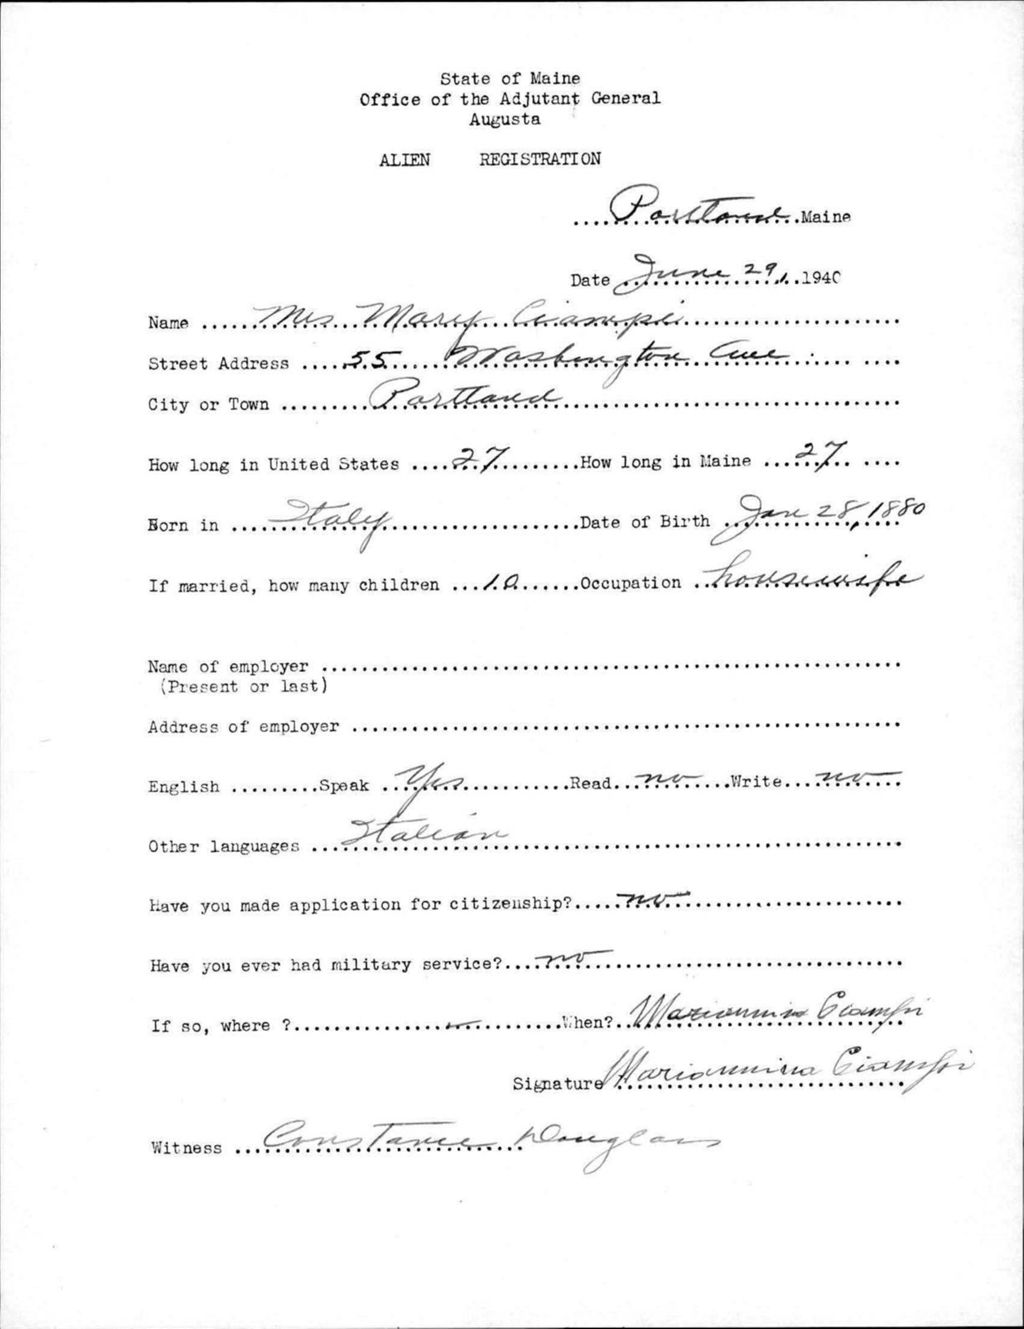 State of Maine
Office of the Adjutant General
Augusta
ALIEN REGISTRATION
....Portland....Maine
Date June 29, 1940
Name ......Mrs Mary Ciampi......
Street Address .....55 Washington Ave.....
City or Town .........Portland.........
How long in United States ....27.........How long in Maine ...27.. ....
Born in ....Italy....................Date of Birth ..Jan 28, 1880
If married, how many children ...10......Occupation ..housewife
Name of employer ............................................................
(Present or last)
Address of employer .........................................................
English .........Speak ..Yes...........Read...no......Write...no....
Other languages ...Italian...................................................
Have you made application for citizenship?.....no.......................
Have you ever had military service?....no...............................
If so, where ?.............................When?..Mariannina Ciampi
Signature Mariannina Ciampi
Witness ...Constance Douglass